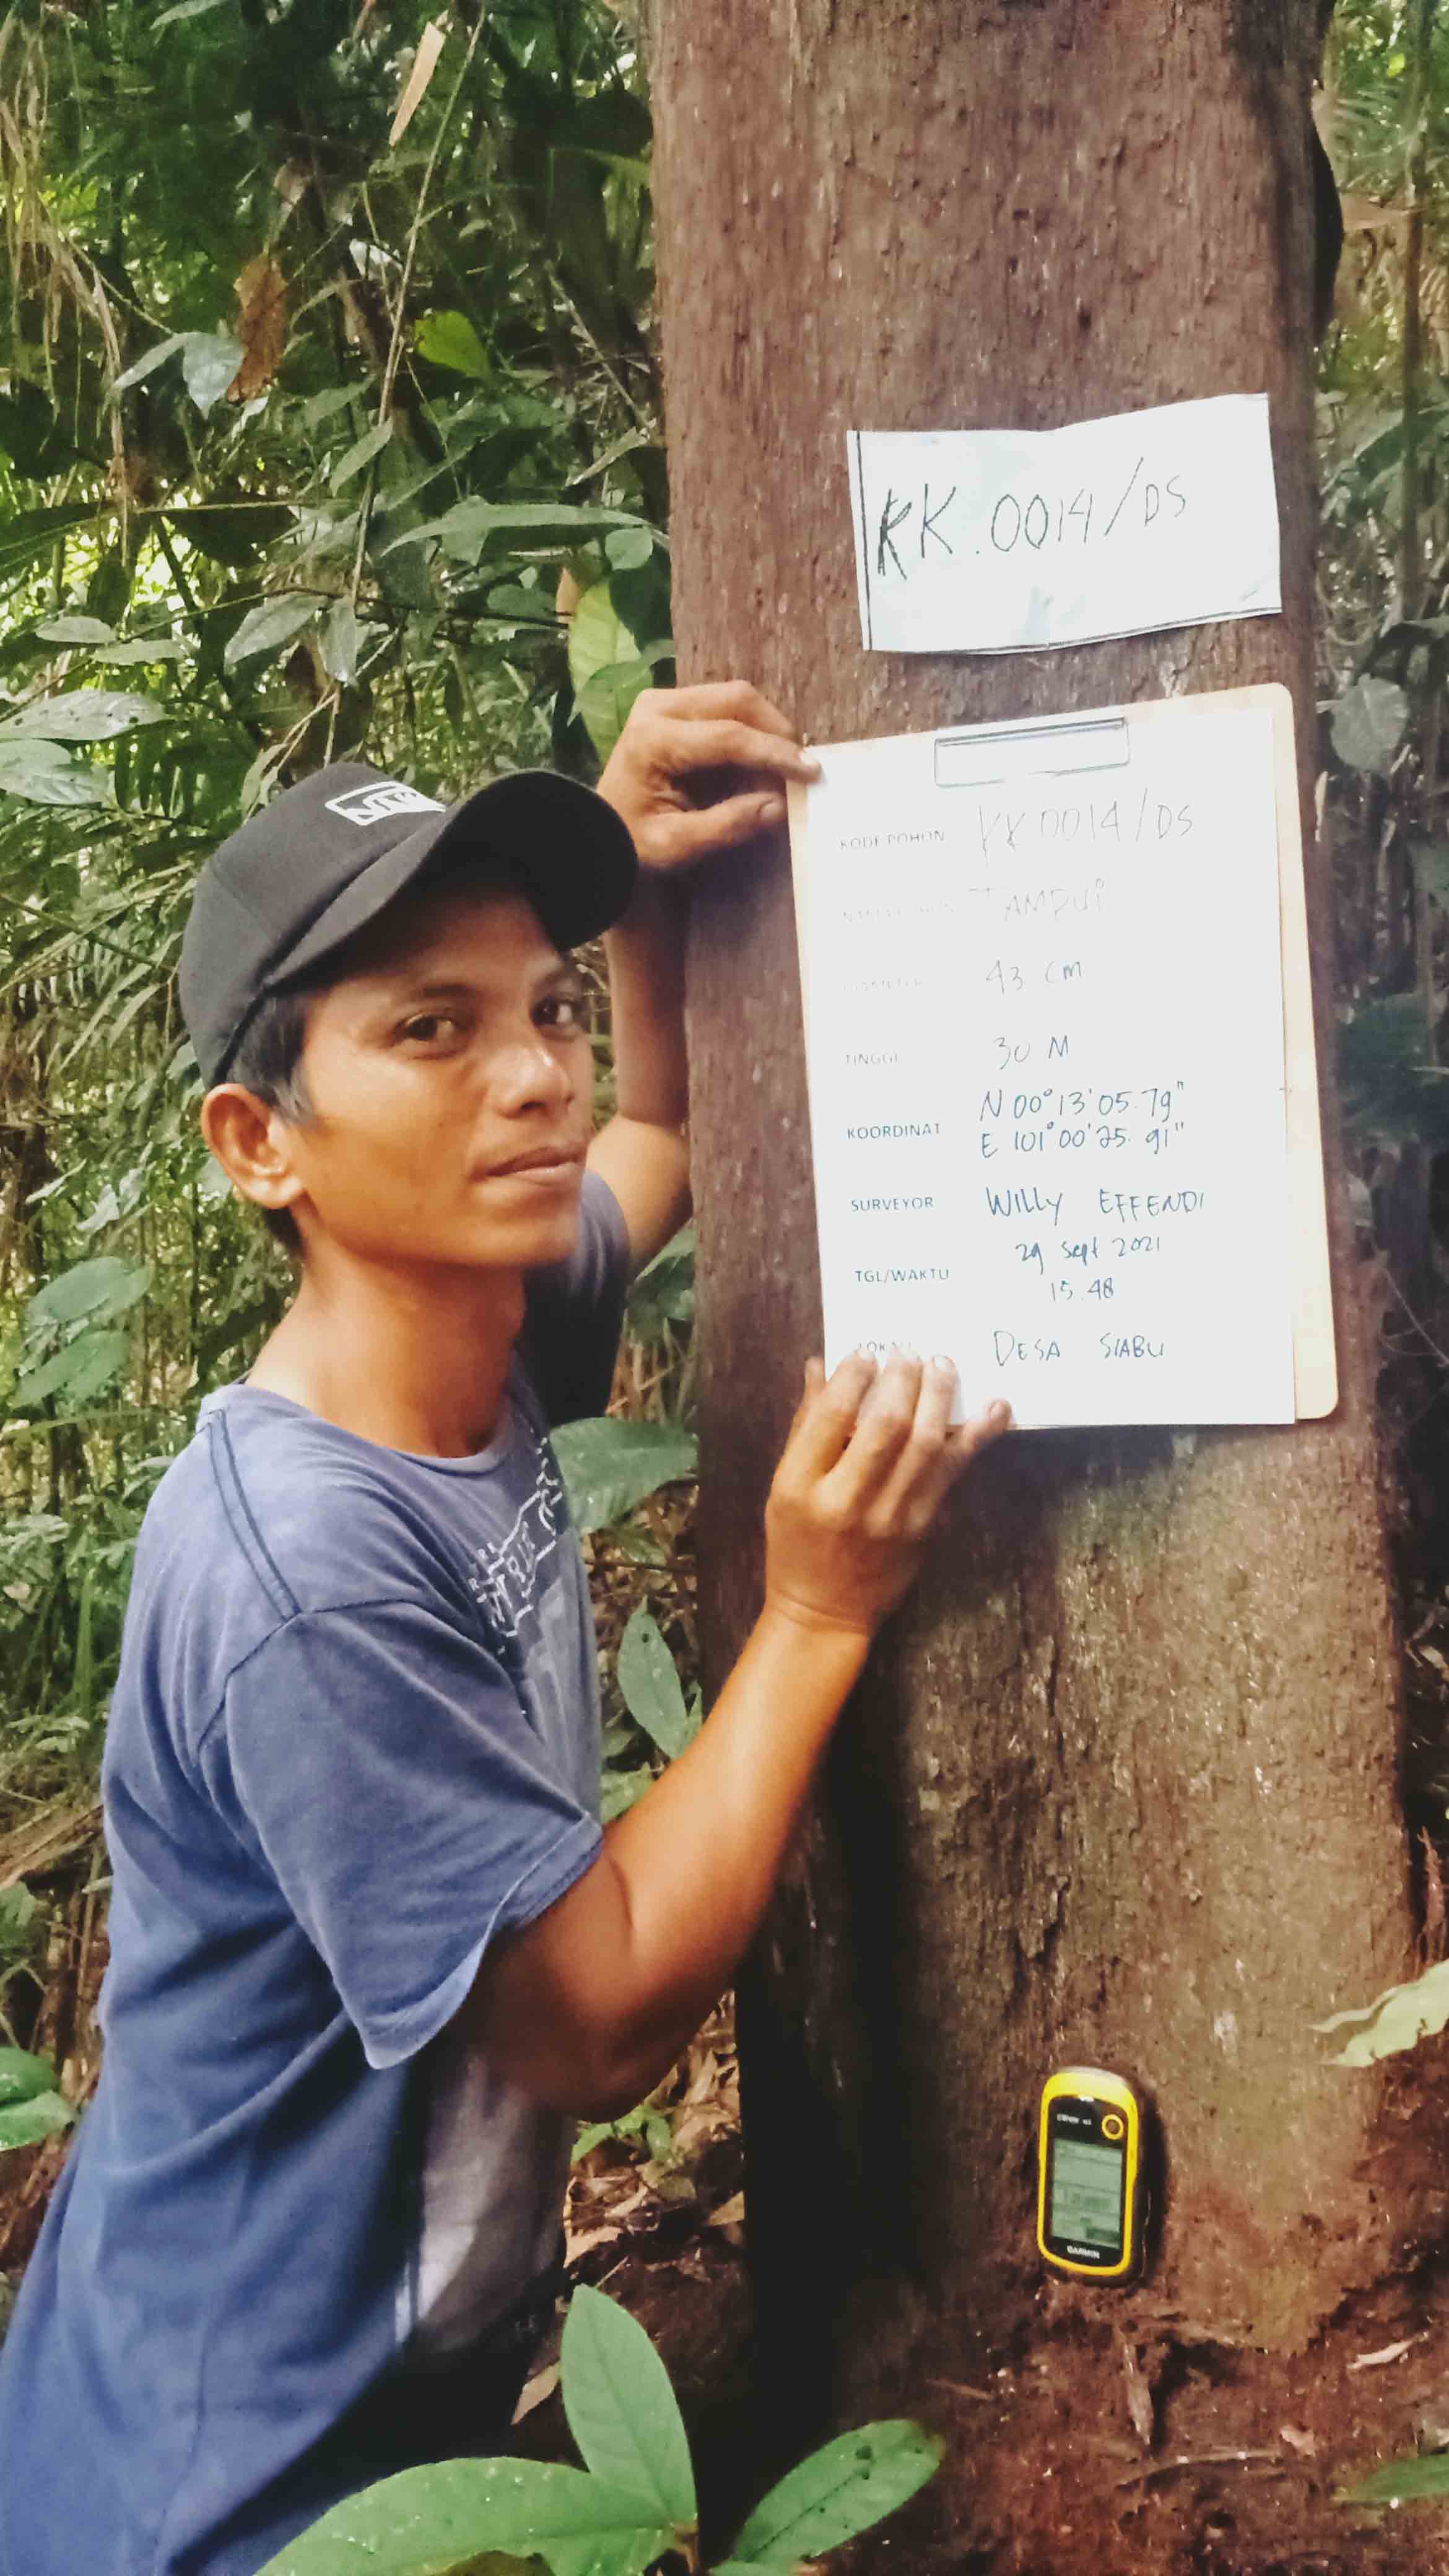 KK.0014/DS
KODE POHON KK 0014/DS
TAMPUI
DIAMETER 43 CM
TINGGI 30 M
KOORDINAT N 00°13'05.79"
E 101°00'25.91"
SURVEYOR WILLY EFFENDI
TGL/WAKTU 29 Sept 2021
15.48
LOKASI DESA SIABU
GARMIN